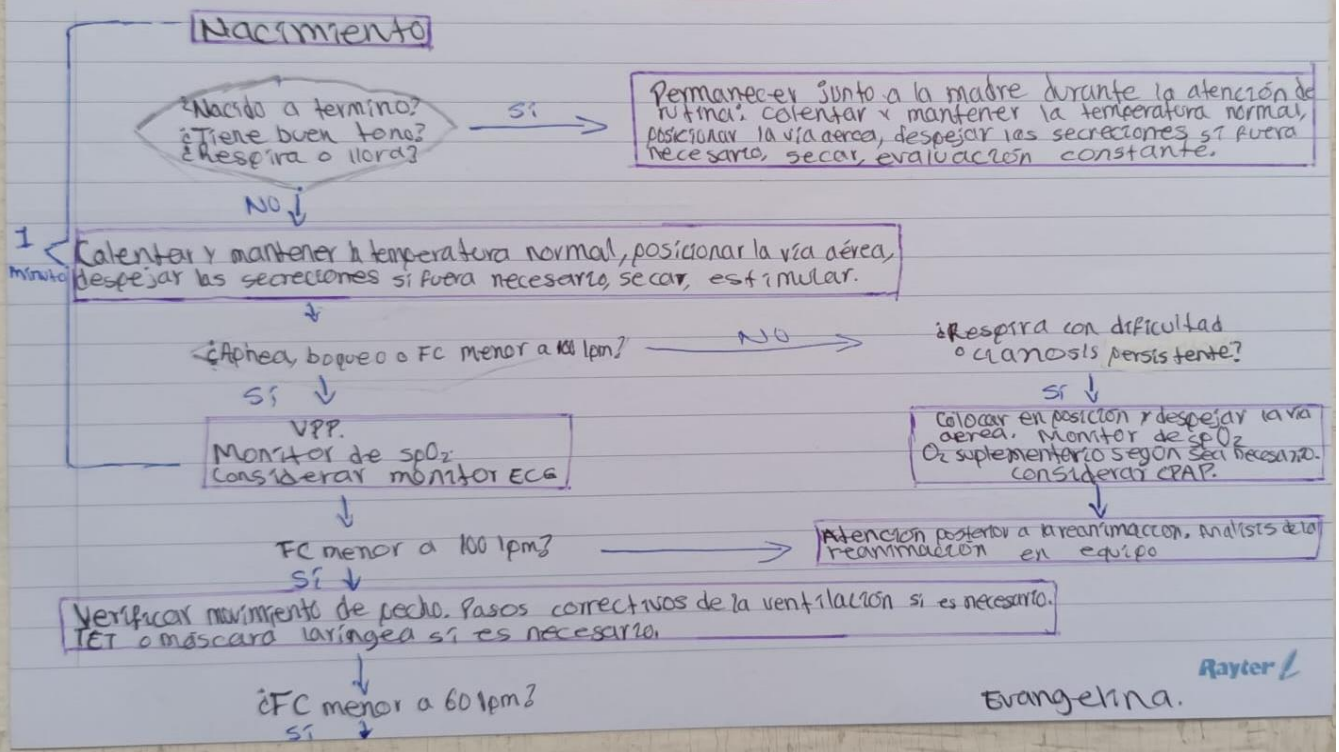 Nacimiento
¿Nacido a termino?
¿Tiene buen tono?
¿Respira o llora?
Sí
Permanecer junto a la madre durante la atención de
rutina: calentar y mantener la temperatura normal,
posicionar la vía aerea, despejar las secreciones si fuera
necesario, secar, evaluación constante.
NO
1
minuto
Calentar y mantener la temperatura normal, posicionar la vía aérea,
despejar las secreciones si fuera necesario, secar, estimular.
¿Aphea, boqueo o FC menor a 100 lpm?
NO
¿Respira con dificultad
o cianosis persistente?
Sí
Sí
VPP.
Monitor de spO2
Considerar monitor ECG
Colocar en posición y despejar la vía
aerea. Monitor de spO2
O2 suplementerio según sea necesario.
considerar CPAP.
FC menor a 100 lpm?
Atención posterior a la reanimaccion. Analisis de la
reanimación en equipo
Sí
Verificar movimiento de pecho. Pasos correctivos de la ventilación si es necesario.
TET o máscara laríngea si es necesario.
¿FC menor a 60 lpm?
Sí
Rayter
Evangelina.